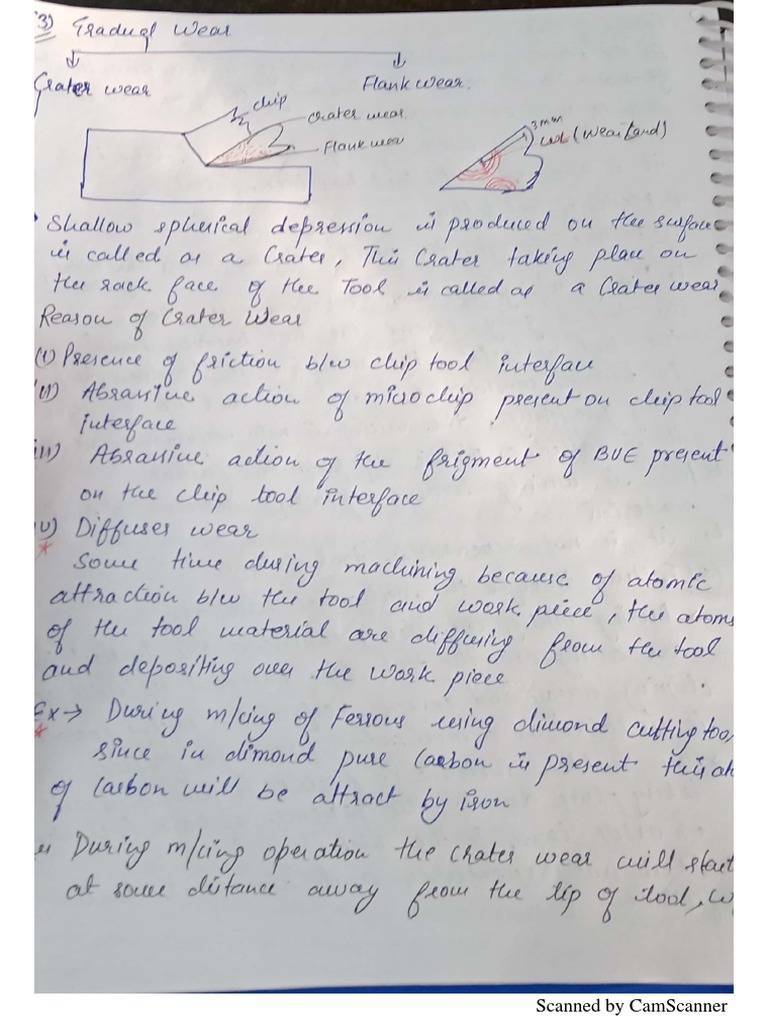 3) Gradual Wear
Crater wear
Flank wear.
chip
crater wear
Flank wear
3mm
WL (Wear Land)
• Shallow spherical depression is produced on the surface
is called as a Crater, This Crater taking place on
the rack face of the Tool is called as a Crater wear
Reason of Crater Wear
(i) Presence of friction b/w chip tool interface
(ii) Abrasive action of microchip present on chip tool
interface
iii) Abrasive action of the frigment of BUE present
on the chip tool interface
iv) Diffuses wear
Some time during machining because of atomic
attraction b/w the tool and work piece, the atoms
of the tool material are diffusing from the tool
and depositing over the work piece
Ex → During m/cing of Ferrous using dimond cutting too
since in dimond pure Carbon is present this at
of Carbon will be attract by iron
During m/cing operation the Crater wear will start
at some distance away from the tip of tool, w
Scanned by CamScanner